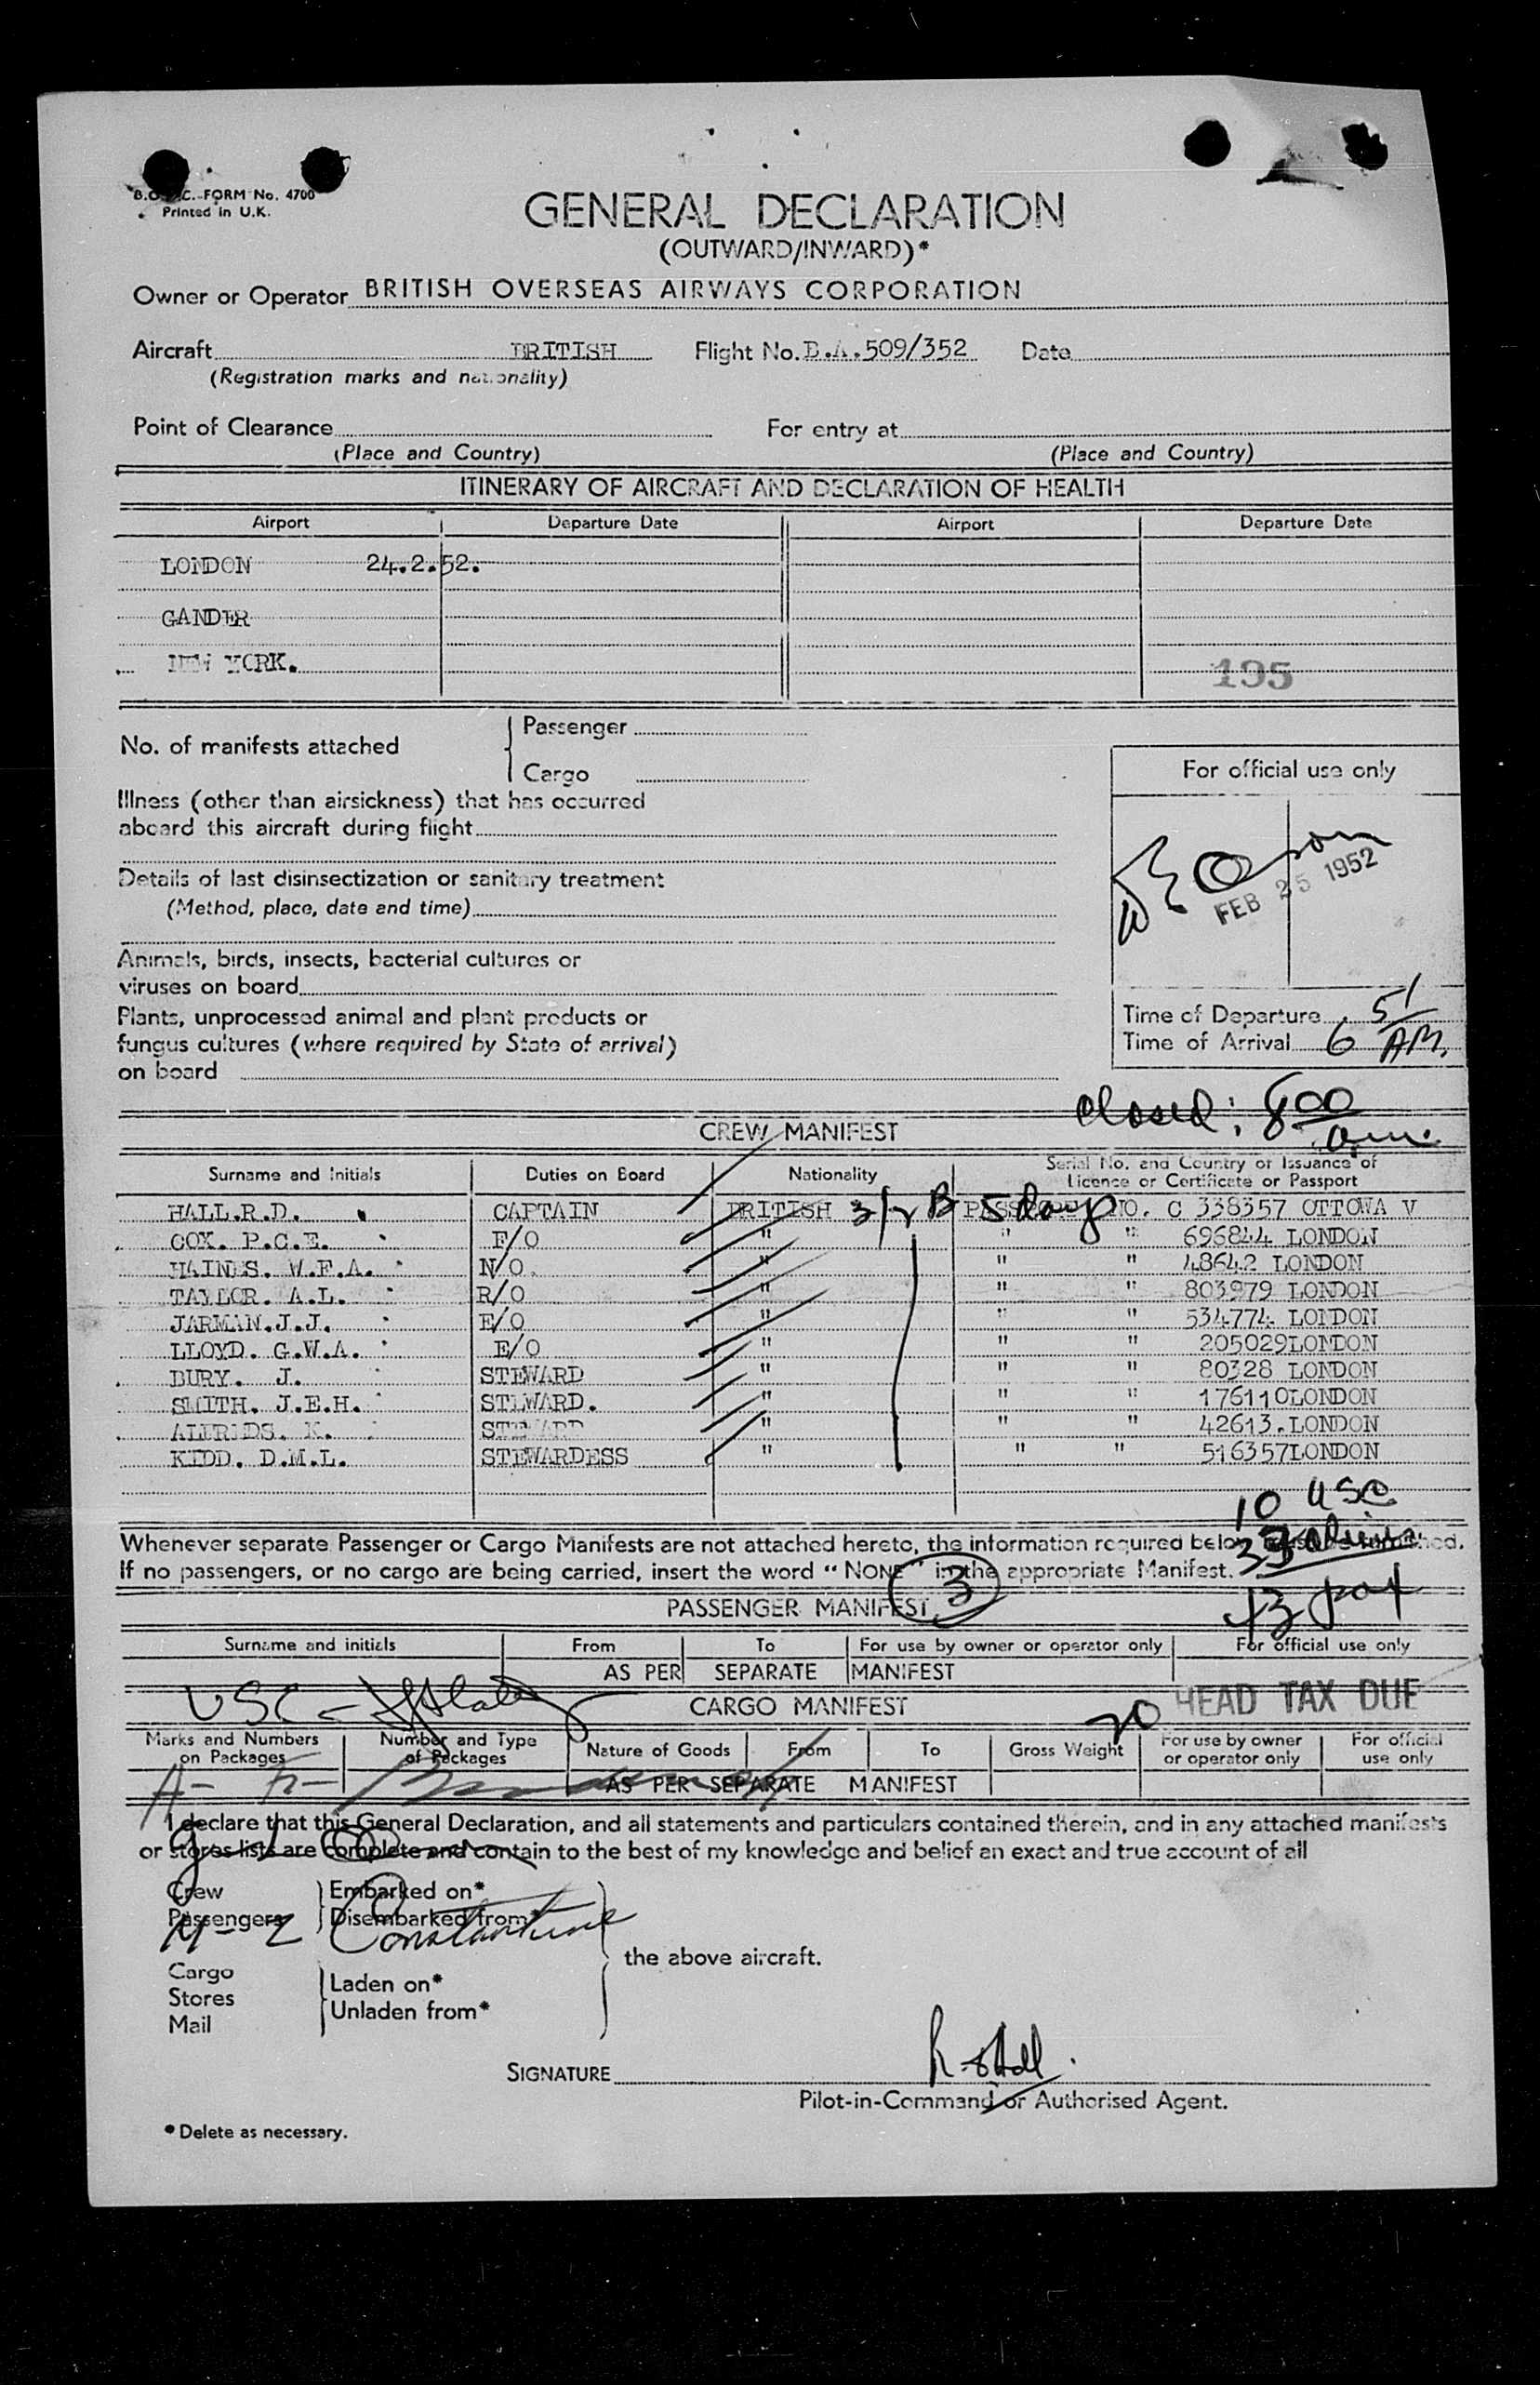 FORM No. 4700
Printed in U.K.
GENERAL DECLARATION
(OUTWARD/INWARD)*
Owner or Operator BRITISH OVERSEAS AIRWAYS CORPORATION
Aircraft BRITISH Flight No. B.A.509/352 Date
(Registration marks and nationality)
Point of Clearance For entry at
(Place and Country) (Place and Country)
ITINERARY OF AIRCRAFT AND DECLARATION OF HEALTH
Airport Departure Date Airport Departure Date
LONDON 24.2.52.
GANDER
NEW YORK.
195
No. of manifests attached
Passenger
Cargo
For official use only
Illness (other than airsickness) that has occurred
aboard this aircraft during flight
FEB 25 1952
Details of last disinsectization or sanitary treatment
(Method, place, date and time)
Animals, birds, insects, bacterial cultures or
viruses on board
Plants, unprocessed animal and plant products or
fungus cultures (where required by State of arrival)
on board
Time of Departure
Time of Arrival 6 51 AM.
closed: 8 00 am.
CREW MANIFEST
Surname and Initials Duties on Board Nationality Serial No. and Country or Issuance of
Licence or Certificate or Passport
HALL.R.D. CAPTAIN BRITISH 3/2 B 5 day NO. C 338357 OTTOWA V
COX. P.C.E. F/O " " " 696844 LONDON
HAINES. W.F.A. N/O. " " " 48642 LONDON
TAYLOR. A.L. R/O " " " 803979 LONDON
JARMAN.J.J. E/O " " " 534774 LONDON
LLOYD. G.W.A. E/O " " " 205029LONDON
BURY. J. STEWARD " " " 80328 LONDON
SMITH. J.E.H. STEWARD. " " " 176110LONDON
K. STEWARD " " " 42613.LONDON
KIDD. D.M.L. STEWARDESS " " " 516357LONDON
10 USC
33 aliens
43 pax
Whenever separate Passenger or Cargo Manifests are not attached hereto, the information required below must be furnished.
If no passengers, or no cargo are being carried, insert the word "NONE" in the appropriate Manifest.
3
PASSENGER MANIFEST
Surname and initials From To For use by owner or operator only For official use only
AS PER SEPARATE MANIFEST
USC -
CARGO MANIFEST
20 HEAD TAX DUE
Marks and Numbers on Packages Number and Type of Packages Nature of Goods From To Gross Weight For use by owner or operator only For official use only
AS PER SEPARATE MANIFEST
I declare that this General Declaration, and all statements and particulars contained therein, and in any attached manifests
or stores lists are complete and contain to the best of my knowledge and belief an exact and true account of all
Crew Embarked on*
Passengers Disembarked from*
M-Z Constantine
the above aircraft.
Cargo
Stores
Mail
Laden on*
Unladen from*
SIGNATURE
Pilot-in-Command or Authorised Agent.
* Delete as necessary.